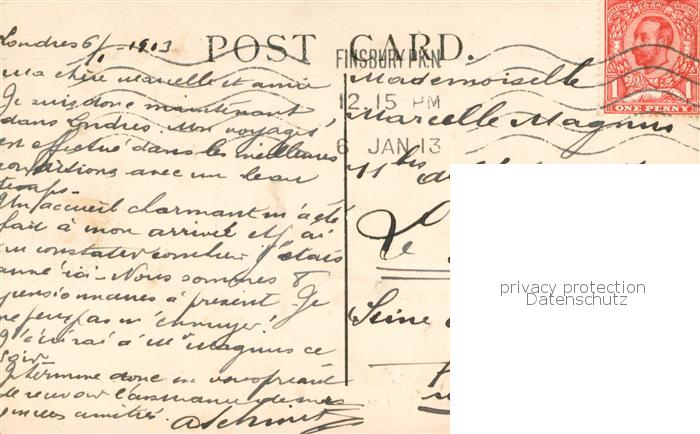 Londres 6/1 1913
POST CARD.
Ma chère Marcelle et amie
Je suis donc maintenant
dans Londres. Mon voyage s'
est effectué dans les meilleures
conditions avec un beau
temps.
Un accueil charmant m'a été
fait à mon arrivée et j'ai
pu constater combien j'étais
aimé ici. Nous sommes 8
pensionnaires à présent. Je
ne peux pas m'ennuyer!
J'écrirai à Mr Magnus ce
soir.
Je termine donc en vous priant
de recevoir l'assurance de mes
amitiés.
FINSBURY PK.N
12.15 PM
6 JAN 13
ONE PENNY
1 1
Mademoiselle
Marcelle Magnus
11bis
Le
Seine
privacy protection
Datenschutz